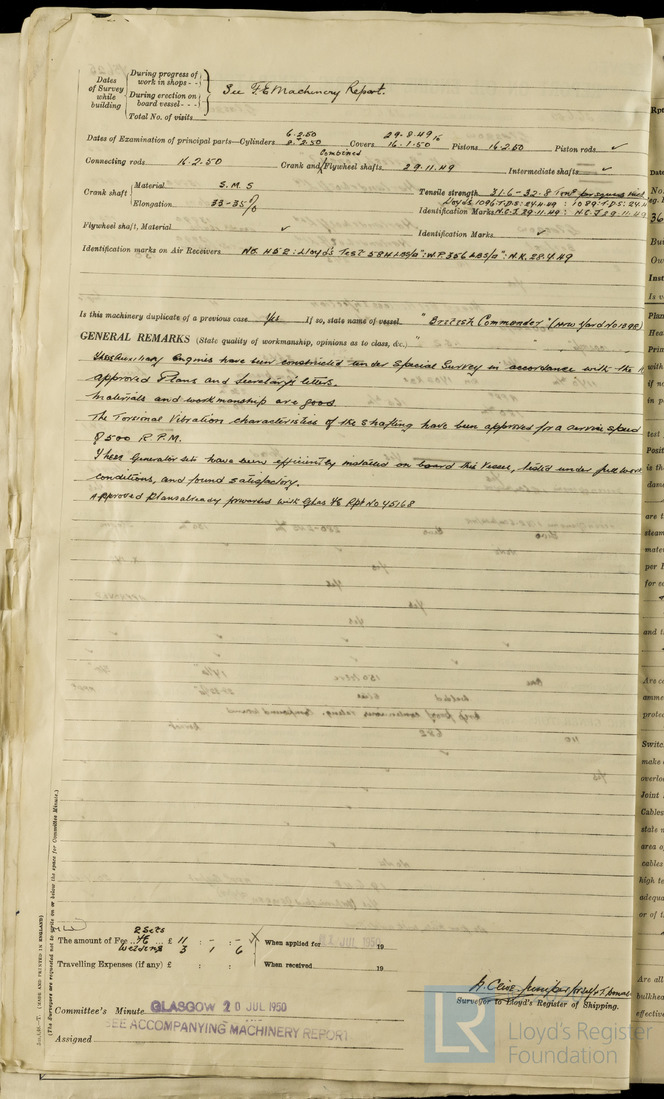 Dates of Survey while building
During progress of work in shops - -
During erection on board vessel - - -
Total No. of visits
See F.E. Machinery Report.
Dates of Examination of principal parts—Cylinders 6.2.50 8.2.50 Covers 29.8.49 16.1.50 Pistons 16.2.50 Piston rods ✓
Connecting rods 16.2.50 Crank and Combined Flywheel shafts 29.11.49 Intermediate shafts ✓
Crank shaft
Material S.M.S
Elongation 33-35%
Tensile strength 31.6-32.8 Tons per square inch
Identification Marks Lloyds 1096.T.D.S. 24.11.49 : 1089.T.D.S. 24.11
N.C.J 29.11.49 : N.C.J 29.11.49
Flywheel shaft, Material ✓ Identification Marks ✓
Identification marks on Air Receivers No. 452 : Lloyd's Test 584 Lbs/□" : W.P. 356 Lbs/□" : N.K. 28.4.49
Is this machinery duplicate of a previous case Yes If so, state name of vessel "British Commander" (New Yard No 1298)
GENERAL REMARKS (State quality of workmanship, opinions as to class, &c.)
These Auxiliary Engines have been constructed under Special Survey in accordance with the
approved Plans and Secretary's letters.
Materials and workmanship are good.
The Torsional Vibration characteristics of the shafting have been approved for a service speed
of 500 R.P.M.
These Generator sets have been efficiently installed on board this Vessel, tested under full work
conditions, and found satisfactory.
Approved Plans already forwarded with Glas. Rpt No 45168
(The Surveyors are requested not to write on or below the space for Committee Minute.)
(MADE AND PRINTED IN ENGLAND)
2 Sets
The amount of Fee £ 11 : - : -
Welding 3 1 6
Travelling Expenses (if any) £ : :
When applied for JUL 1950 19
When received 19
Surveyor to Lloyd's Register of Shipping.
Committee's Minute GLASGOW 20 JUL 1950
SEE ACCOMPANYING MACHINERY REPORT
Assigned
LR Lloyd's Register Foundation